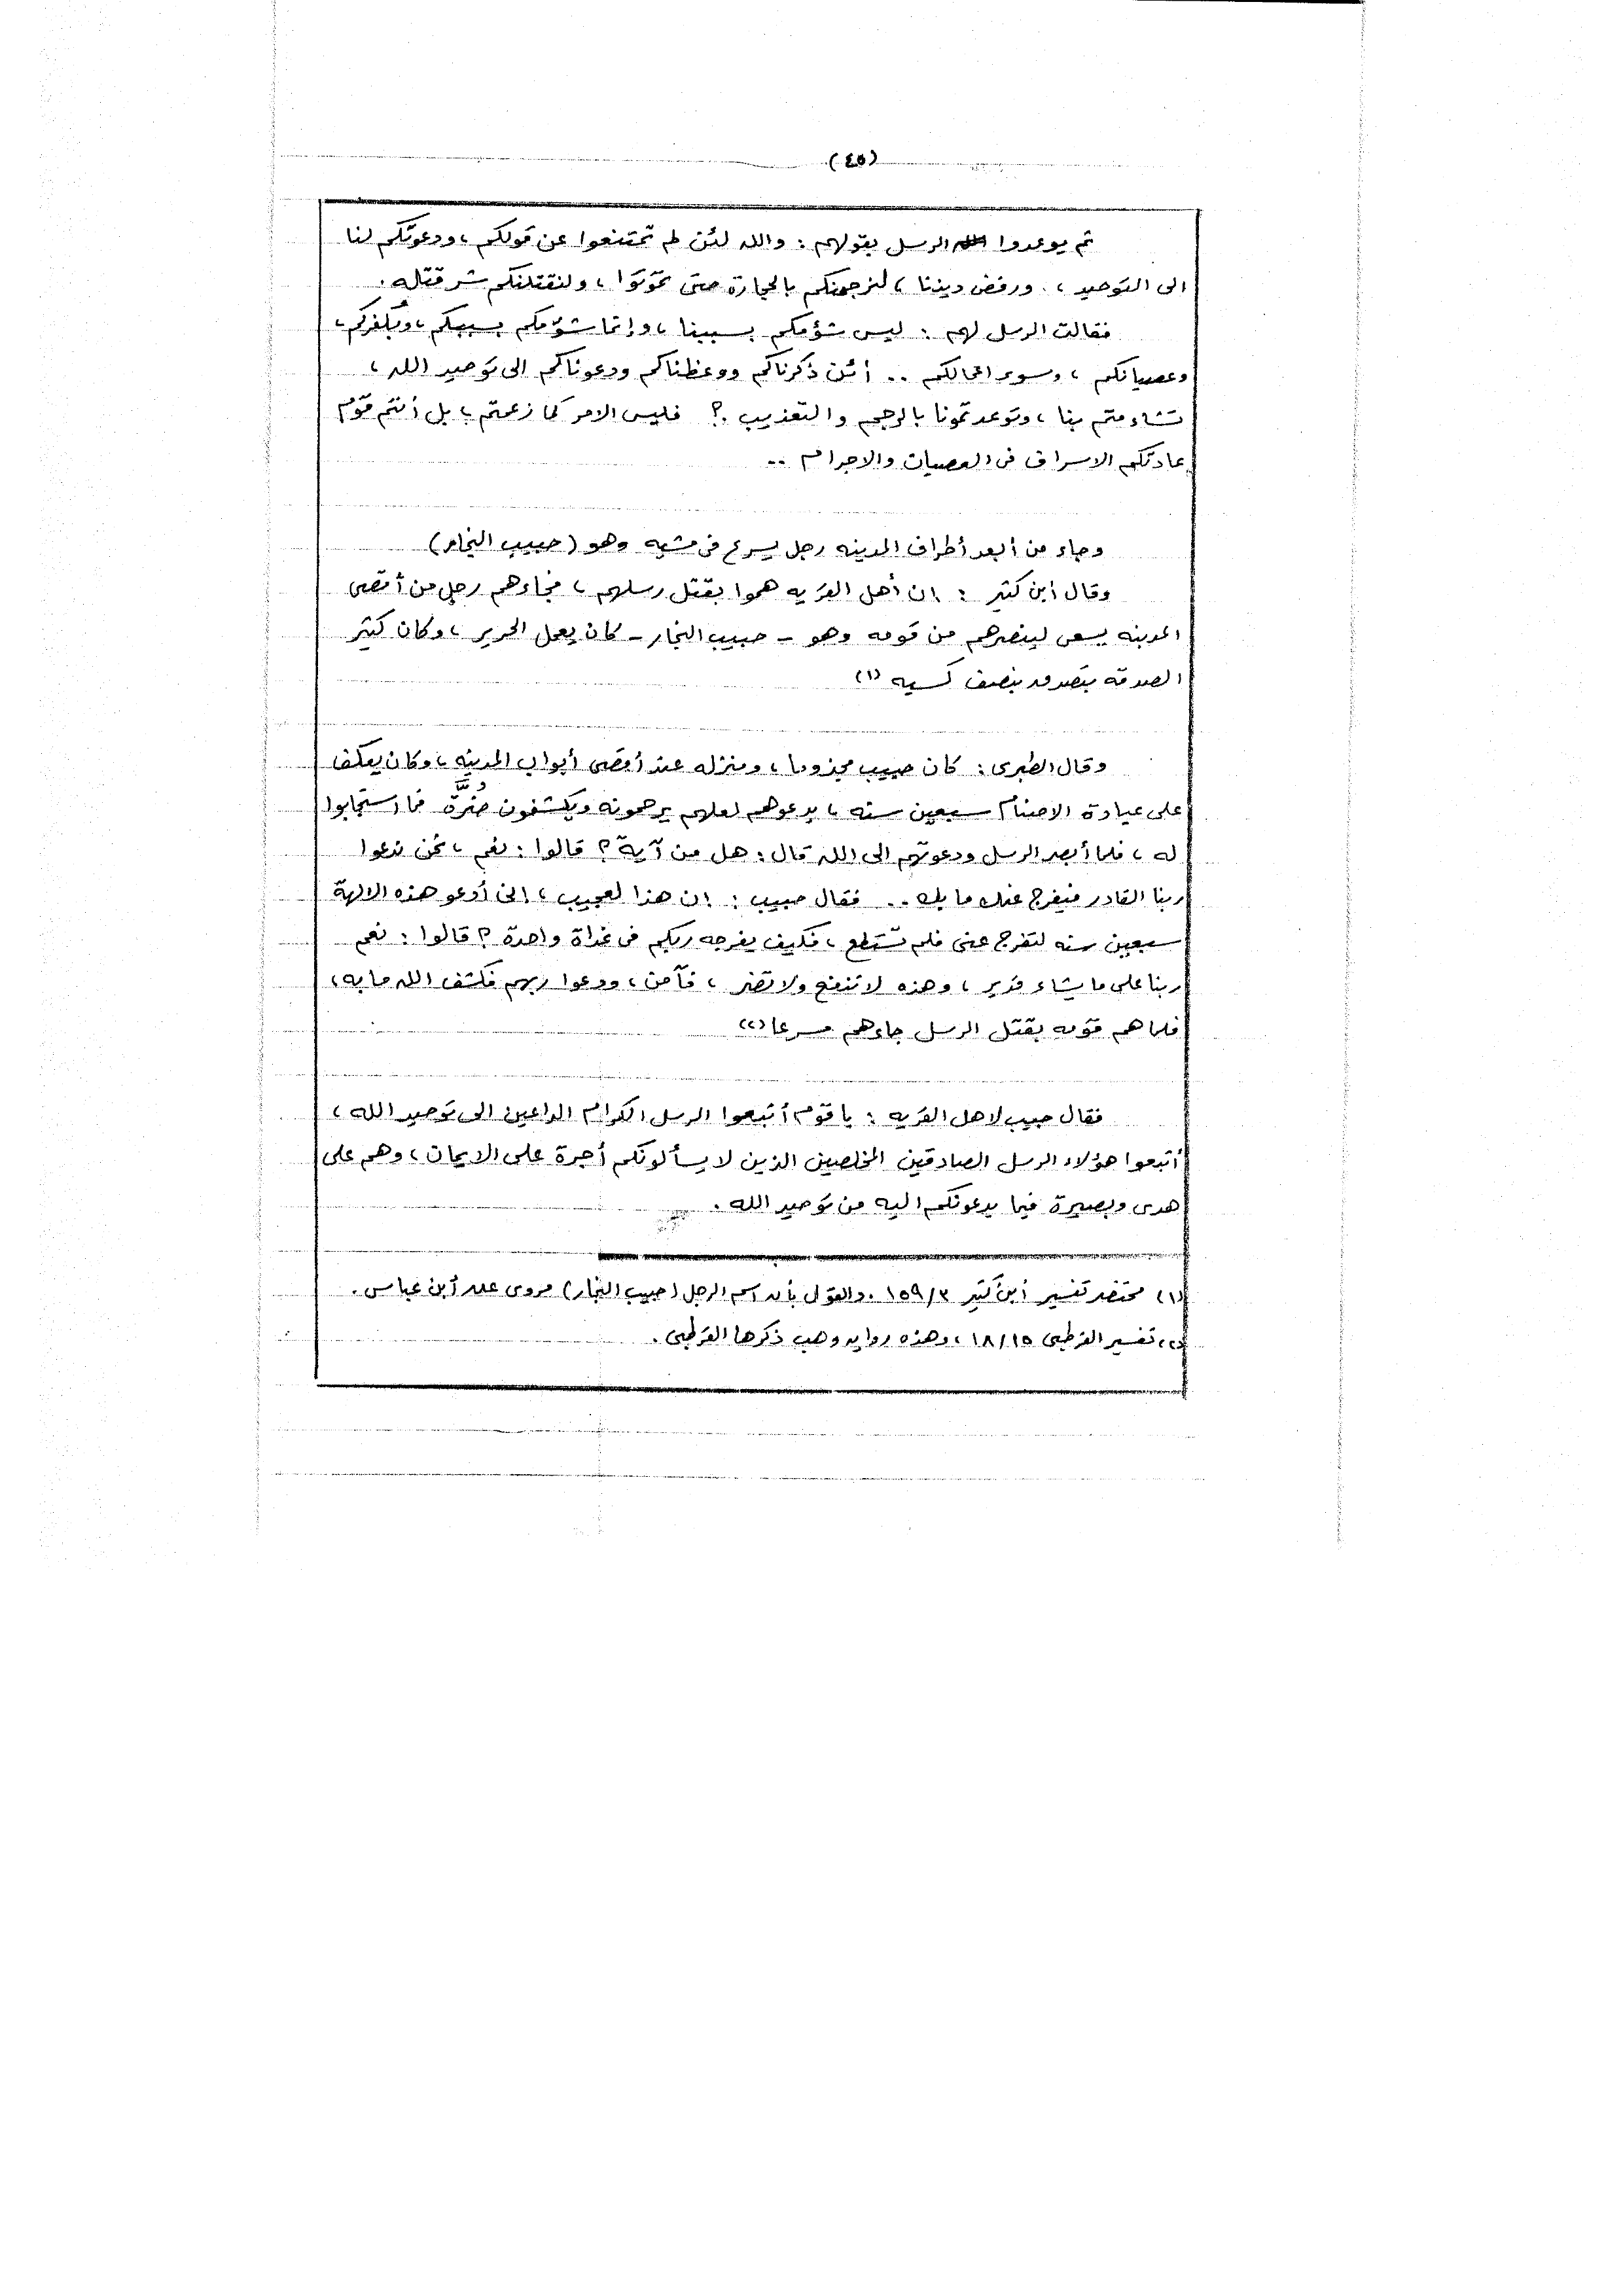 (٤٥)
ثم يوعدوا الرسل بقولهم : والله لئن لم تمتنعوا عن قولكم ، ودعوتكم لنا
الى التوحيد ، ورفض ديننا ، لنرجمنكم بالحجارة حتى تموتوا ، ولنقتلنكم شر قتله .
فقالت الرسل لهم : ليس شؤمكم بسببنا ، وإنما شؤمكم بسببكم ، وبكفركم ،
وعصيانكم ، وسوء اعمالكم .. أئن ذكرناكم ووعظناكم ودعوناكم الى توحيد الله ،
تشاءمتم بنا ، وتوعدتمونا بالرجم والتعذيب .؟ فليس الامر كما زعمتم ، بل أنتم قوم
عادتكم الاسراف فى العصيان والاجرام ..
وجاء من أبعد أطراف المدينه رجل يسرع فى مشيه وهو (حبيب النجار)
وقال أبن كثير : ان أهل القريه هموا بقتل رسلهم ، فجاءهم رجل من أقصى
المدينه يسعى لينصرهم من قومه وهو - حبيب النجار - كان يعمل الحرير ، وكان كثير
الصدقه يتصدق بنصف كسبه (١)
وقال الطبرى : كان حبيب مجذوما ، ومنزله عند أقصى أبواب المدينه ، وكان يعكف
على عبادة الاصنام سبعين سنه ، يدعوهم لعلهم يرحمونه ويكشفون ضُرَّهُ فما استجابوا
له ، فلما أبصر الرسل ودعوتهم الى الله قال : هل من آية ؟ قالوا : نعم ، نحن ندعوا
ربنا القادر فيفرج عنك ما بك .. فقال حبيب : ان هذا لعجيب ، إنى أدعو هذه الالهة
سبعين سنه لتفرج عنى فلم تستطع ، فكيف يفرجه ربكم فى غداة واحدة ؟ قالوا : نعم
ربنا على ما يشاء قدير ، وهذه لا تنفع ولا تضر ، فآمن ، ودعوا ربهم فكشف الله ما به ،
فلما هم قومه بقتل الرسل جاءهم مسرعا (٢)
فقال حبيب لاهل القريه : يا قوم أتبعوا الرسل الكرام الداعين الى توحيد الله ،
أتبعوا هؤلاء الرسل الصادقين المخلصين الذين لا يسألونكم أجرة على الايمان ، وهم على
هدى وبصيرة فيما يدعونكم اليه من توحيد الله .
(١) مختصر تفسير أبن كثير ١٥٩/٣ . والقول بأن اسم الرجل (حبيب النجار) مروى عن أبن عباس .
(٢) تفسير القرطبى ١٨/١٥ ، وهذه روايه وهب ذكرها القرطبى .